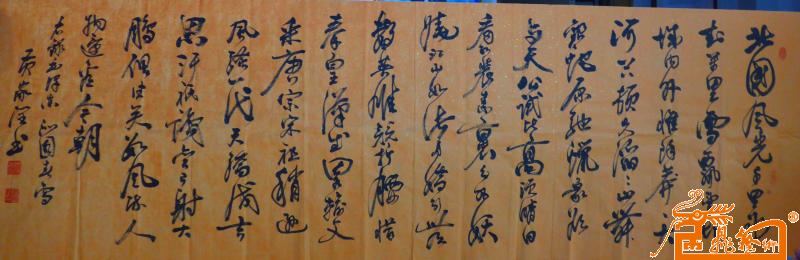 北國风光千里冰
封万里雪飘望长
城内外惟余莽莽大
河上下顿失滔滔山舞
银蛇原驰蜡象欲
与天公试比高须晴日
看红装素裹分外妖
娆江山如此多娇引无
数英雄竞折腰惜
秦皇汉武略输文
采唐宗宋祖稍逊
风骚一代天骄成吉
思汗只识弯弓射大
鵰俱往矣数风流人
物还看今朝
右录毛泽东沁园春雪
书